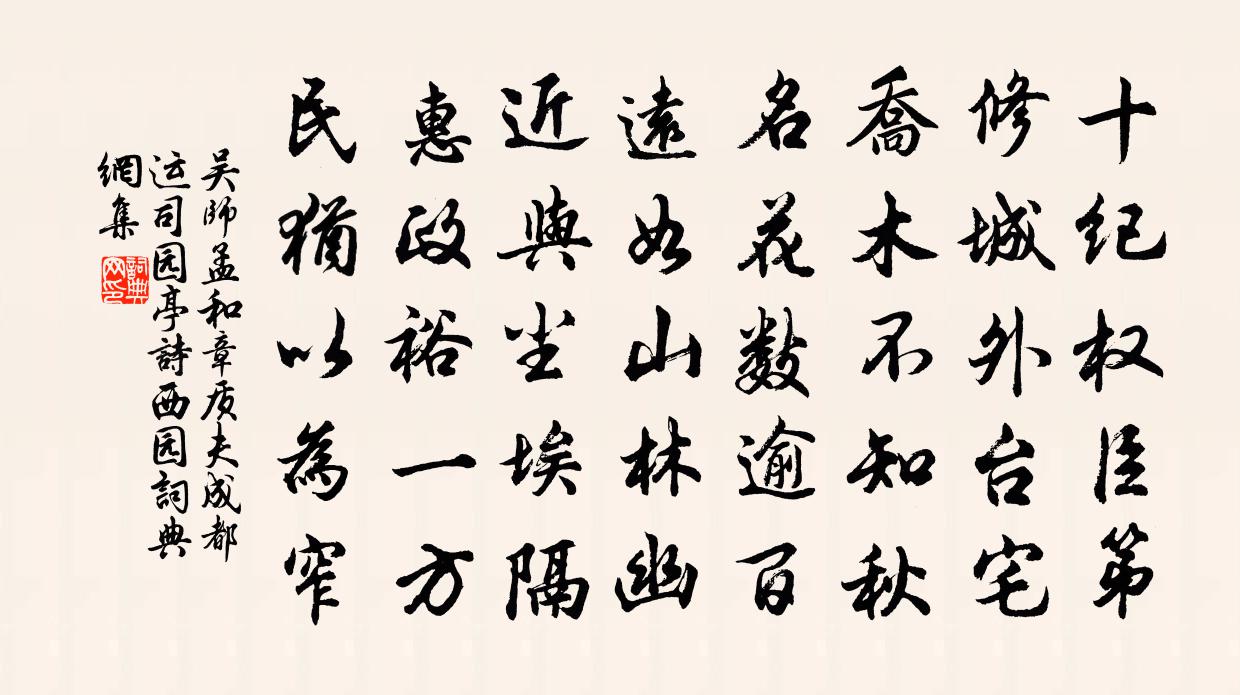 十纪权臣第
修城外台宅
喬木不知秋
名花数逾百
遠如山林幽
近與尘埃隔
惠政裕一方
民猶以為窄
吴師孟和章质夫成都
运司园亭詩西园詞典
網集
詞典
网印